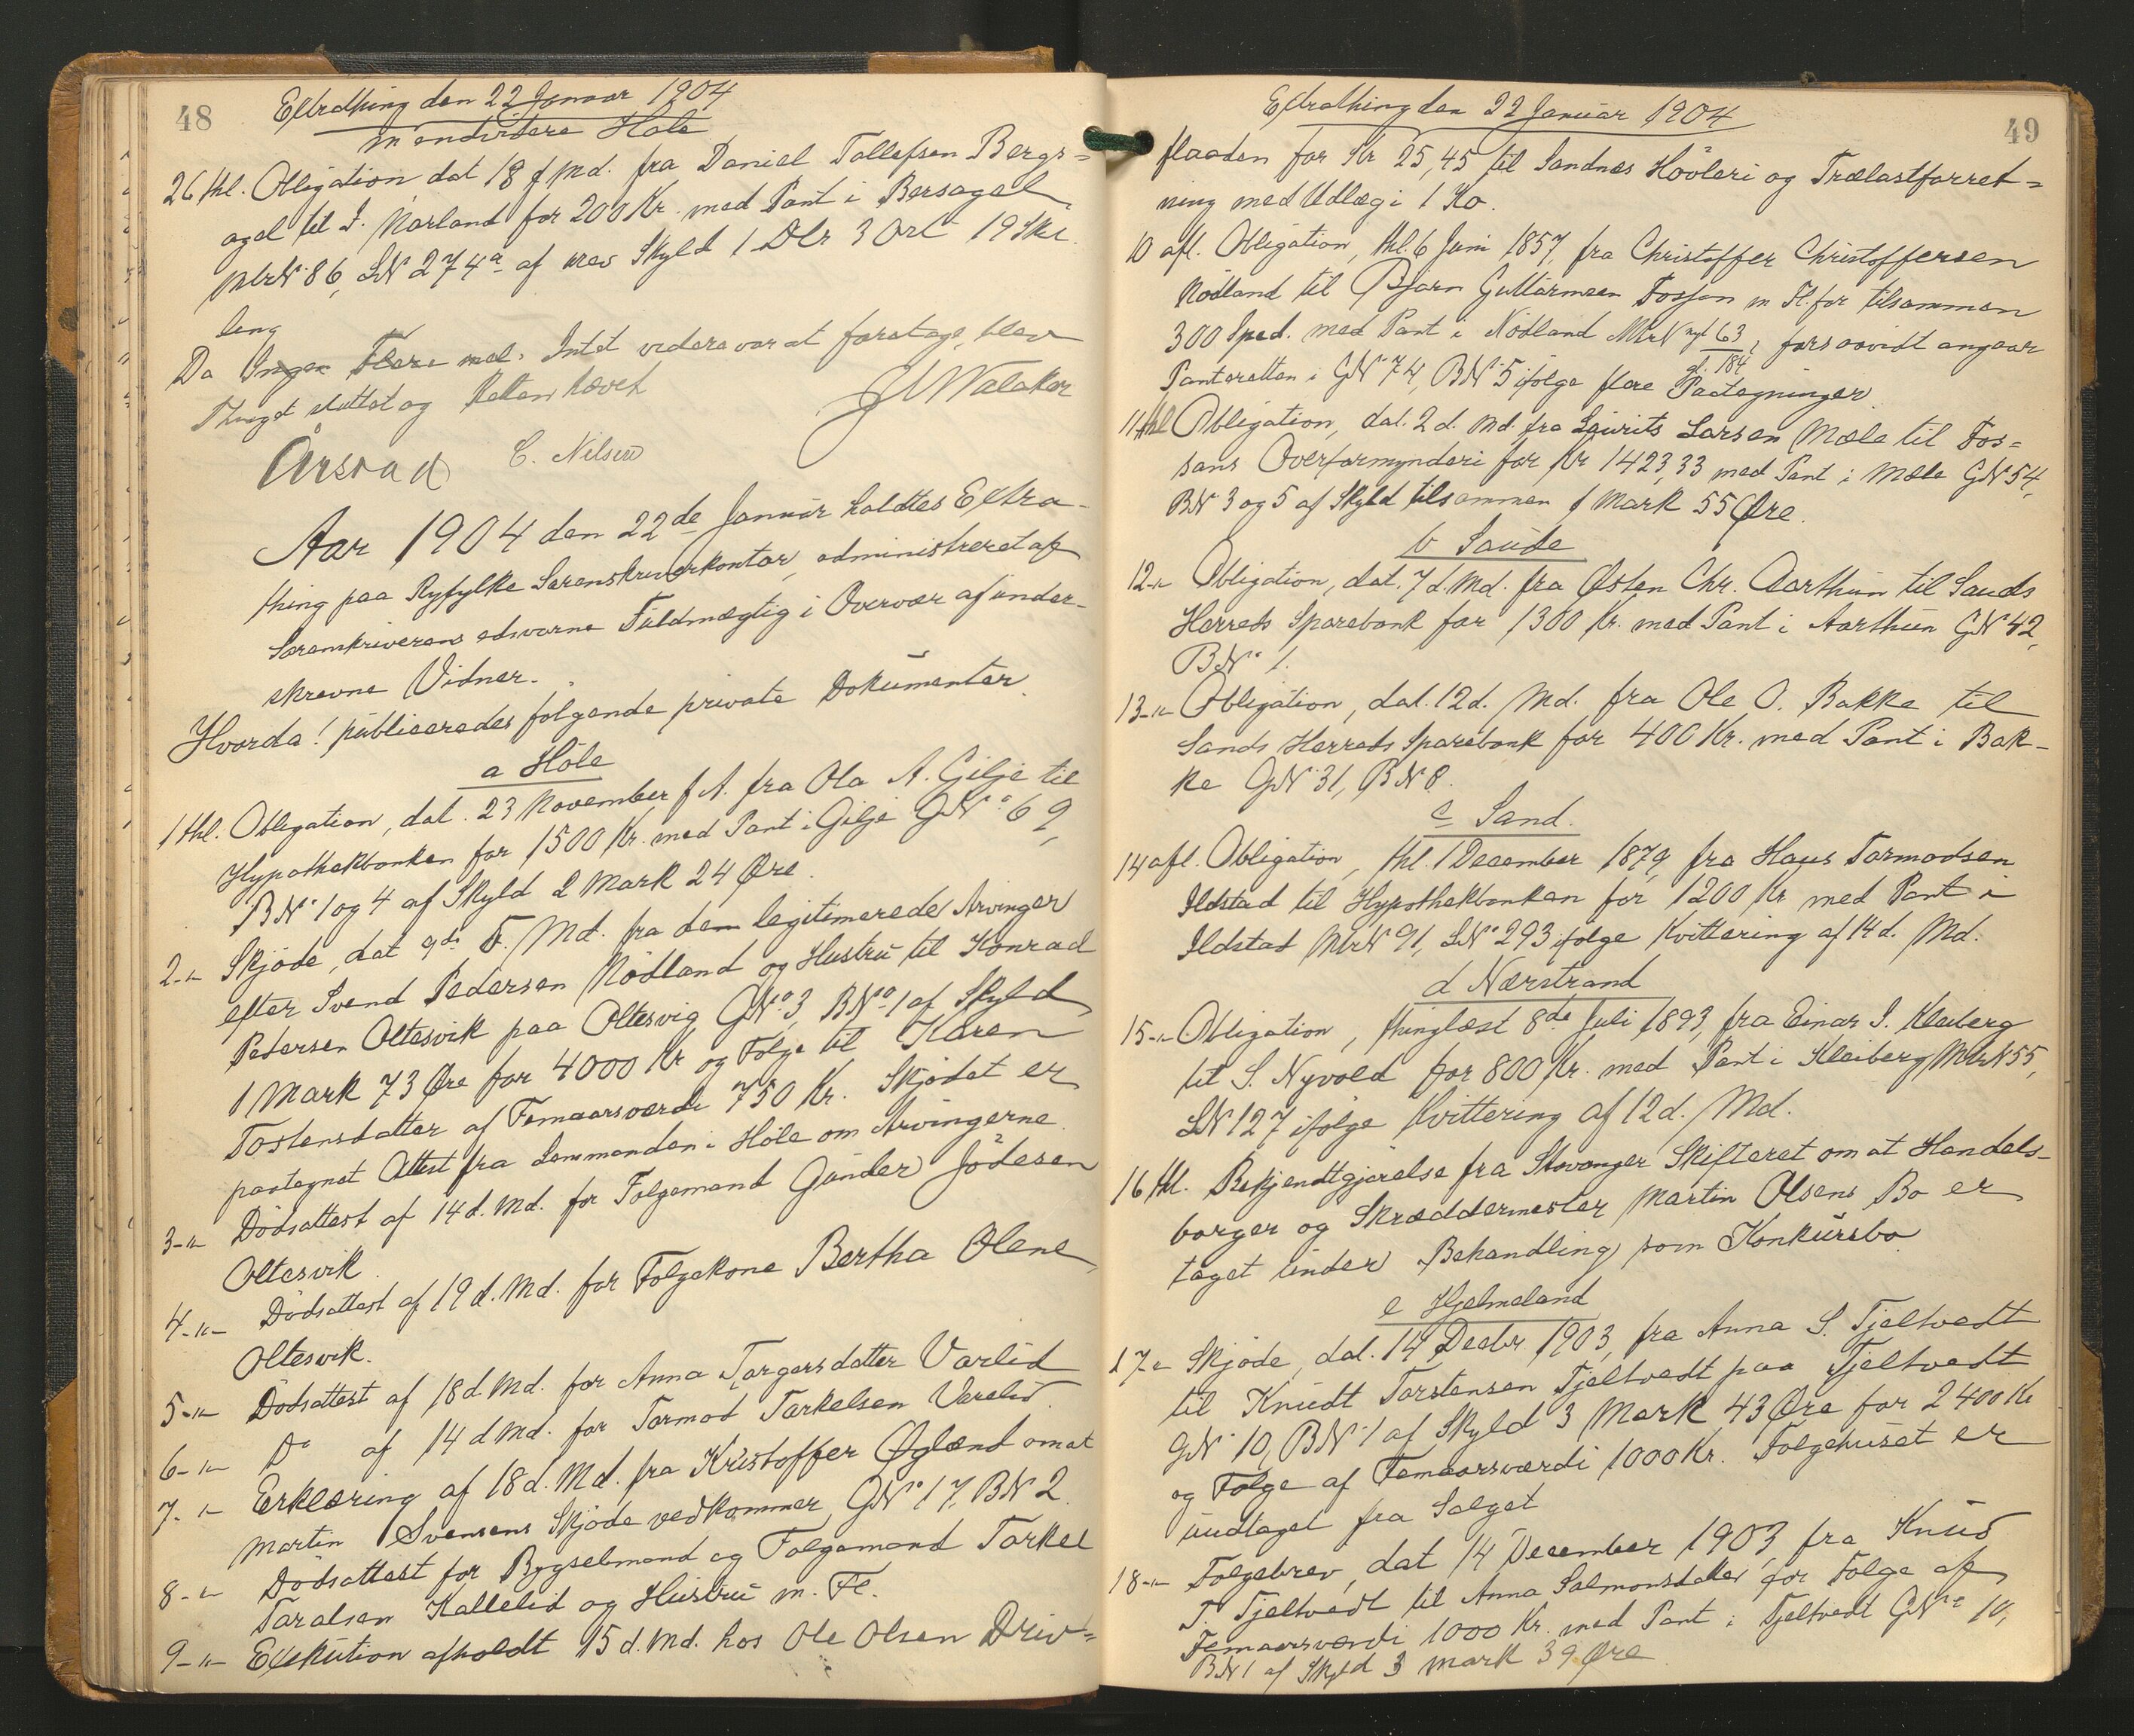 48
Extrathing den 22 Januar 1904
m endvidere Hole
26 thl. Obligation dat 18 f Md. fra Daniel Tollefsen Bergs=
agel til I. Norland for 200 Kr. med Pant i Bersagel
MtrN 86, LN 274a af rev Skyld 1 Dlr 3 Ort 19 Skil
ling
Da Ingen Flere mel. Intet videre var at foretage, blev
Thinget sluttet og Retten hævet
JM Walaker
Årsvad C. Nilsen
Aar 1904 den 22de Januar holdtes Extra-
thing paa Ryfylke Sorenskriverkontor, administreret af
Sorenskriverens edsvorne Fuldmægtig i Overvær af under-
skrevne Vidner.
Hvorda! publiceredes følgende private Dokumenter
a Höle
1 thl. Obligation, dat. 23 November f A. fra Ola A. Gilje til
Hypothekbanken for 1500 Kr. med Pant i Gilje GN° 69,
BN° 1 og 4 af Skyld 2 Mark 24 Øre.
2-"- Skjøde, dat 9de F. Md. fra dem legitimerede Arvinger
efter Svend Pedersen Nödland og Hustru til Konrad
Pedersen Oltesvik paa Oltesvig GN° 3, BN° 1 af Skyld
1 Mark 73 Øre for 4000 Kr og Folge til Karen
Tostensdatter af Femaarsværdi 750 Kr. Skjödet er
paategnet Attest fra Lensmanden i Höle om Arvingerne.
3-"- Dödsattest af 14 d. Md. for Folgemand Gunder Jödesen
Oltesvik.
4-"- Dödsattest af 19 d. Md. for Folgekone Bertha Olene
Oltesvik.
5-"- Dödsattest af 18 d Md. for Anna Torgersdatter Varlid
6-"- Do af 14 d Md. for Tormod Torkelsen Varelid.
7-"- Erklæring af 18 d. Md. fra Kristoffer Øglænd om at
Martin Svensens Skjöde vedkommer GN° 17, BN 2.
8-"- Dödsattest for Bygselmand og Folgemand Torkel
Taralsen Kallelid og Hustru m. Fl.
9-"- Exekution afholdt 15 d. Md. hos Ole Olsen Driv=
49
Extrathing den 22 Januar 1904
flaaden for Kr 25,45 til Sandnes Hövleri og Trælastforret=
ning med Udlæg i 1 Ko.
10 afl. Obligation, thl. 6 Juni 1857, fra Christoffer Christoffersen
Nödland til Bjørn Guttormsen Fossan m Fl. for tilsammen
300 Spd. med Pant i Nödland MtrN nyt 63, forsaavidt angaar
gl. 184
Panteretten i GN° 74, BN° 5 ifölge flere Paategninger
11 thl Obligation, dat. 2 d. Md. fra Laurits Larsen Mæle til Fos=
sans Overformynderi for Kr 1423,33 med Pant i Mæle GN 54,
BN 3 og 5 af Skyld tilsammen 1 Mark 55 Øre.
b Saude
12-"- Obligation, dat. 7 d. Md. fra Østen Chr. Aarthun til Sauds
Herreds Sparebank for 1300 Kr. med Pant i Aarthun GN° 42,
BN° 1.
13-"- Obligation, dat. 12 d. Md. fra Ole O. Bakke til
Sands Herreds Sparebank for 400 Kr. med Pant i Bak-
ke GN° 31, BN 8.
c Sand.
14 afl. Obligation, thl. 1 December 1879, fra Hans Tormodsen
Ilstad til Hypothekbanken for 1200 Kr med Pant i
Ilstad MtrN 91, LN° 293 ifölge Kvittering af 14 d. Md.
d Nærstrand
15-"- Obligation, thinglæst 8de Juli 1893, fra Einar I. Kleiberg
til S. Nyvold for 800 Kr. med Pant i Kleiberg MtrN 55,
LN 127 ifölge Kvittering af 12 d. Md.
16 thl. Bekjendtgjørelse fra Stavanger Skifteret om at Handels-
borger og Skræddermester Martin Olsens Bo er
taget under Behandling som Konkursbo
e Hjelmeland
17-"- Skjøde, dat. 14 Decbr 1903, fra Anna S. Tjeltvedt
til Knudt Torstensen Tjeltvedt paa Tjeltvedt
GN° 10, BN° 1 af Skyld 3 Mark 43 Øre for 2400 Kr
og Folge af Femaarsværdi 1000 Kr. Folgehuset er
undtaget fra Salget
18-"- Folgebrev, dat 14 December 1903 fra Knud
T. Tjeltvedt til Anna Salmonsdatter for Folge af
Femaarsværdi 1000 Kr. med Pant i Tjeltvedt GN° 10,
BN 1 af Skyld 3 mark 39 Øre